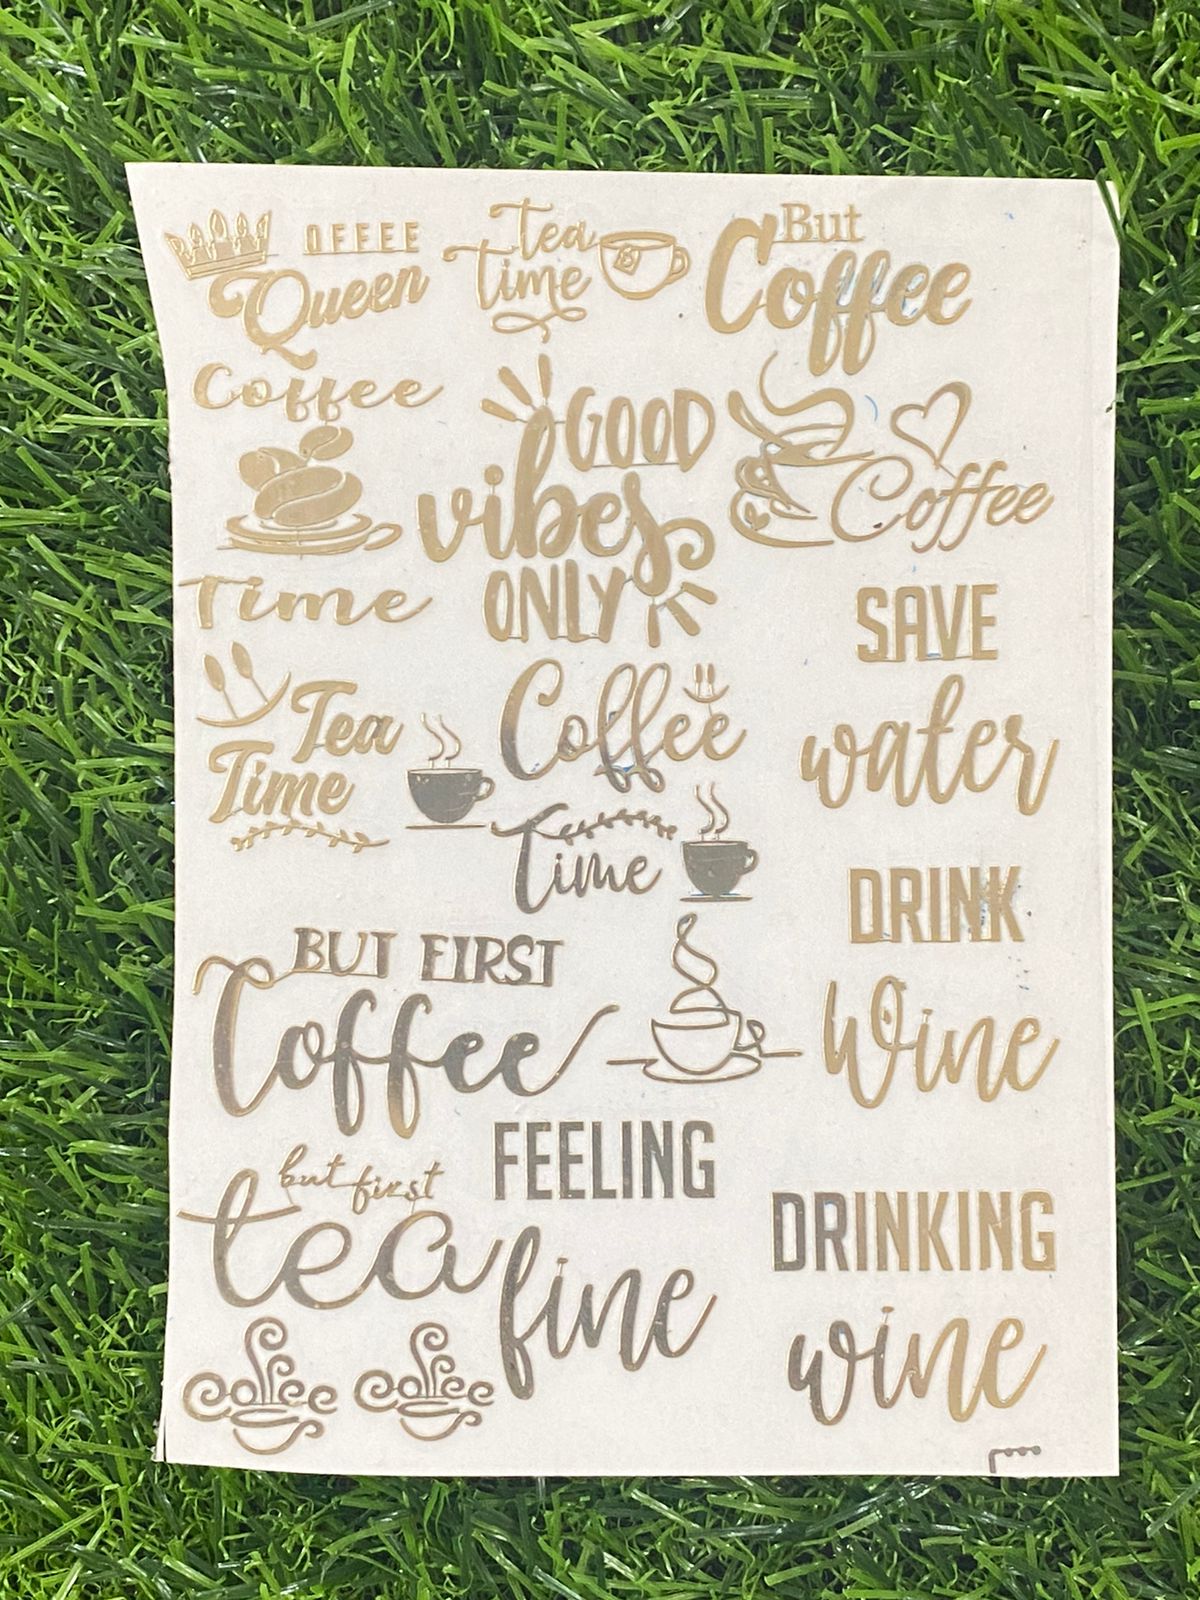 OFFEE
Queen
tea
time
But
Coffee
Coffee
Time
GOOD
vibes
ONLY
Coffee
Tea
Time
Coffee
Time
SAVE
water
DRINK
Wine
BUT FIRST
Coffee
but first
tea
FEELING
fine
DRINKING
wine
coffee
coffee